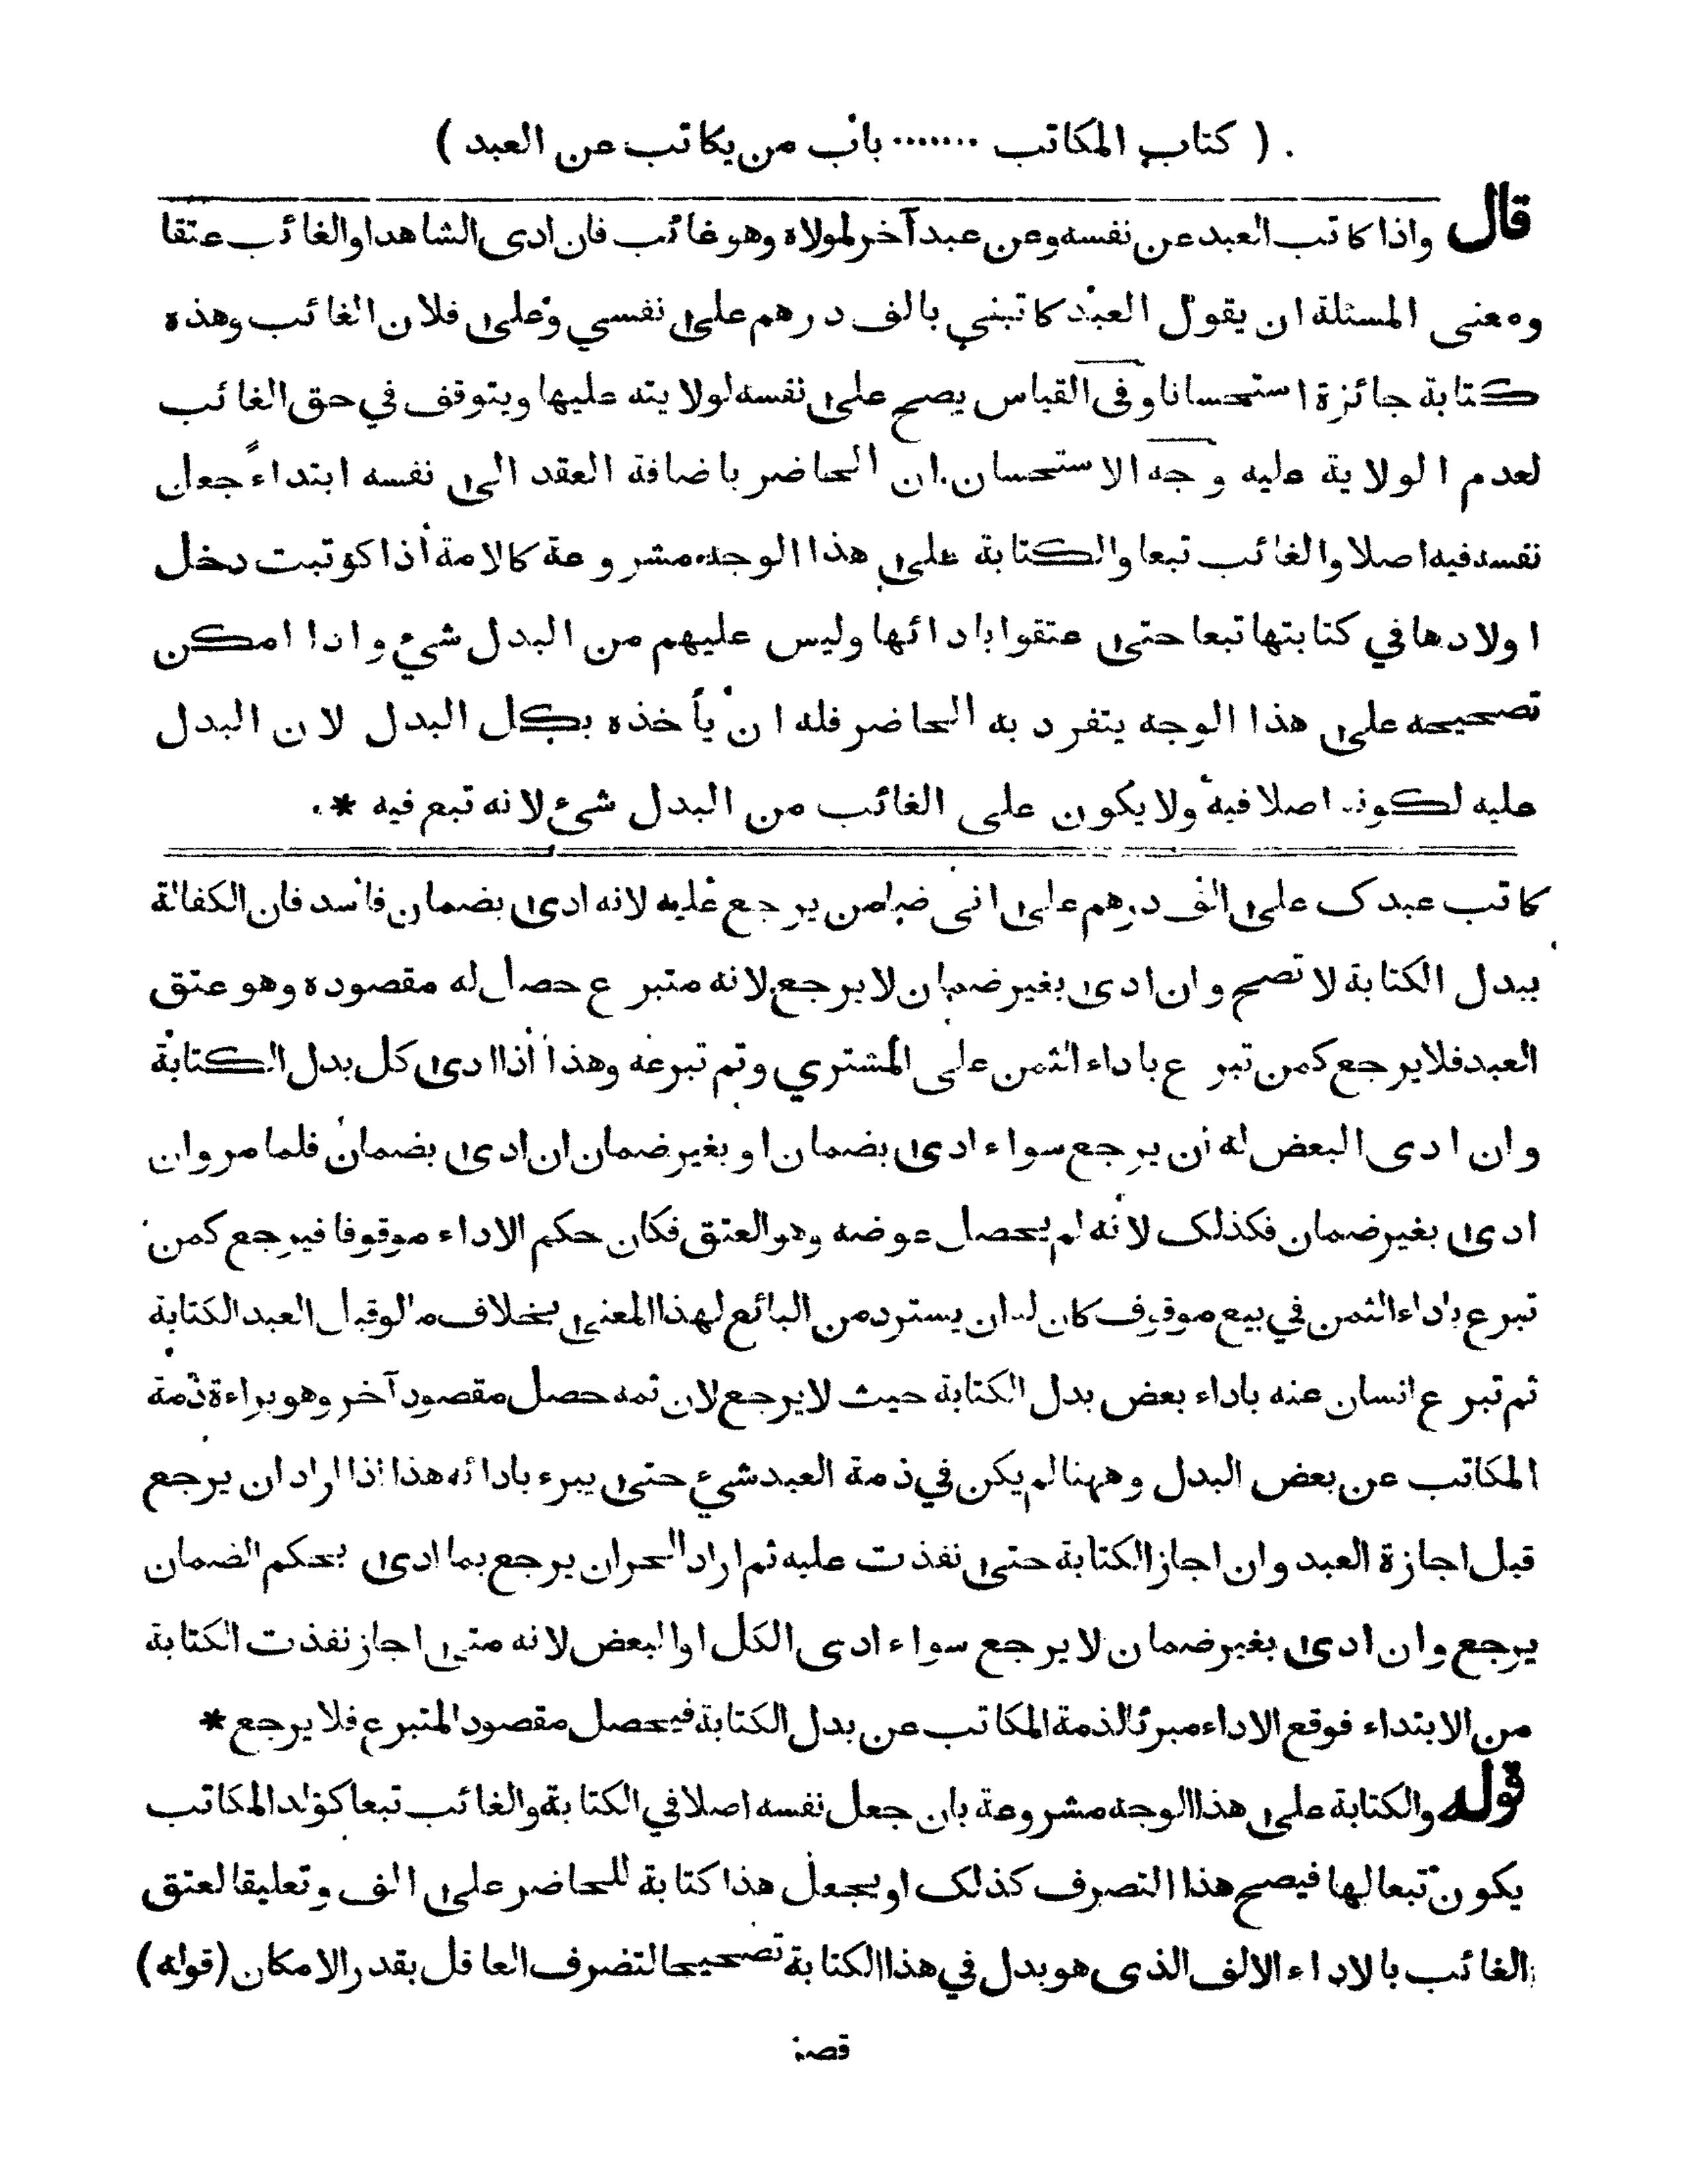 ( كتاب المكاتب ٠٠٠٠٠٠٠ باب من يكاتب عن العبد )
قال واذا كاتب العبد عن نفسه وعن عبد آخر لمولاه وهو غائب فان ادى الشاهد او الغائب عتقا
ومعنى المسئلة ان يقول العبد كاتبني بالف درهم على نفسي وعلى فلان الغائب وهذه
كتابة جائزة استحسانا وفى القياس يصح على نفسه لولايته عليها ويتوقف في حق الغائب
لعدم الولاية عليه وجه الاستحسان ان الحاضر باضافة العقد الى نفسه ابتداءً جعل
نفسه فيه اصلا والغائب تبعا والكتابة على هذا الوجه مشروعة كالامة اذا كوتبت دخل
اولادها في كتابتها تبعا حتى عتقوا بادائها وليس عليهم من البدل شيء واذا امكن
تصحيحه على هذا الوجه يتفرد به الحاضر فله ان يأخذه بكل البدل لان البدل
عليه لكونه اصلا فيه ولا يكون على الغائب من البدل شئ لانه تبع فيه *
كاتب عبدك على الف درهم على انى ضامن يرجع عليه لانه ادى بضمان فاسد فان الكفالة
ببدل الكتابة لا تصح وان ادى بغير ضمان لا يرجع لانه متبرع حصل له مقصوده وهو عتق
العبد فلا يرجع كمن تبرع باداء الثمن على المشتري وتم تبرعه وهذا اذا ادى كل بدل الكتابة
وان ادى البعض له ان يرجع سواء ادى بضمان او بغير ضمان ان ادى بضمان فلما مر وان
ادى بغير ضمان فكذلك لانه لم يحصل عوضه وهو العتق فكان حكم الاداء موقوفا فيرجع كمن
تبرع باداء الثمن في بيع موقوف كان له ان يسترد من البائع لهذا المعنى بخلاف ما لو قبل العبد الكتابة
ثم تبرع انسان عنه باداء بعض بدل الكتابة حيث لا يرجع لان ثمه حصل مقصود آخر وهو براءة ذمة
المكاتب عن بعض البدل وههنا لم يكن في ذمة العبد شيء حتى يبرء بادائه هذا اذا اراد ان يرجع
قبل اجازة العبد وان اجاز الكتابة حتى نفذت عليه ثم اراد الحر ان يرجع بما ادى بحكم الضمان
يرجع وان ادى بغير ضمان لا يرجع سواء ادى الكل او البعض لانه متى اجاز نفذت الكتابة
من الابتداء فوقع الاداء مبرئا لذمة المكاتب عن بدل الكتابة فيحصل مقصود المتبرع فلا يرجع *
قوله والكتابة على هذا الوجه مشروعة بان جعل نفسه اصلا في الكتابة والغائب تبعا كولد المكاتب
يكون تبعا لها فيصح هذا التصرف كذلك او يجعل هذا كتابة للحاضر على الف وتعليقا لعتق
الغائب بالاداء الالف الذى هو بدل في هذا الكتابة تصحيحا لتضرف العاقل بقدر الامكان (قوله)